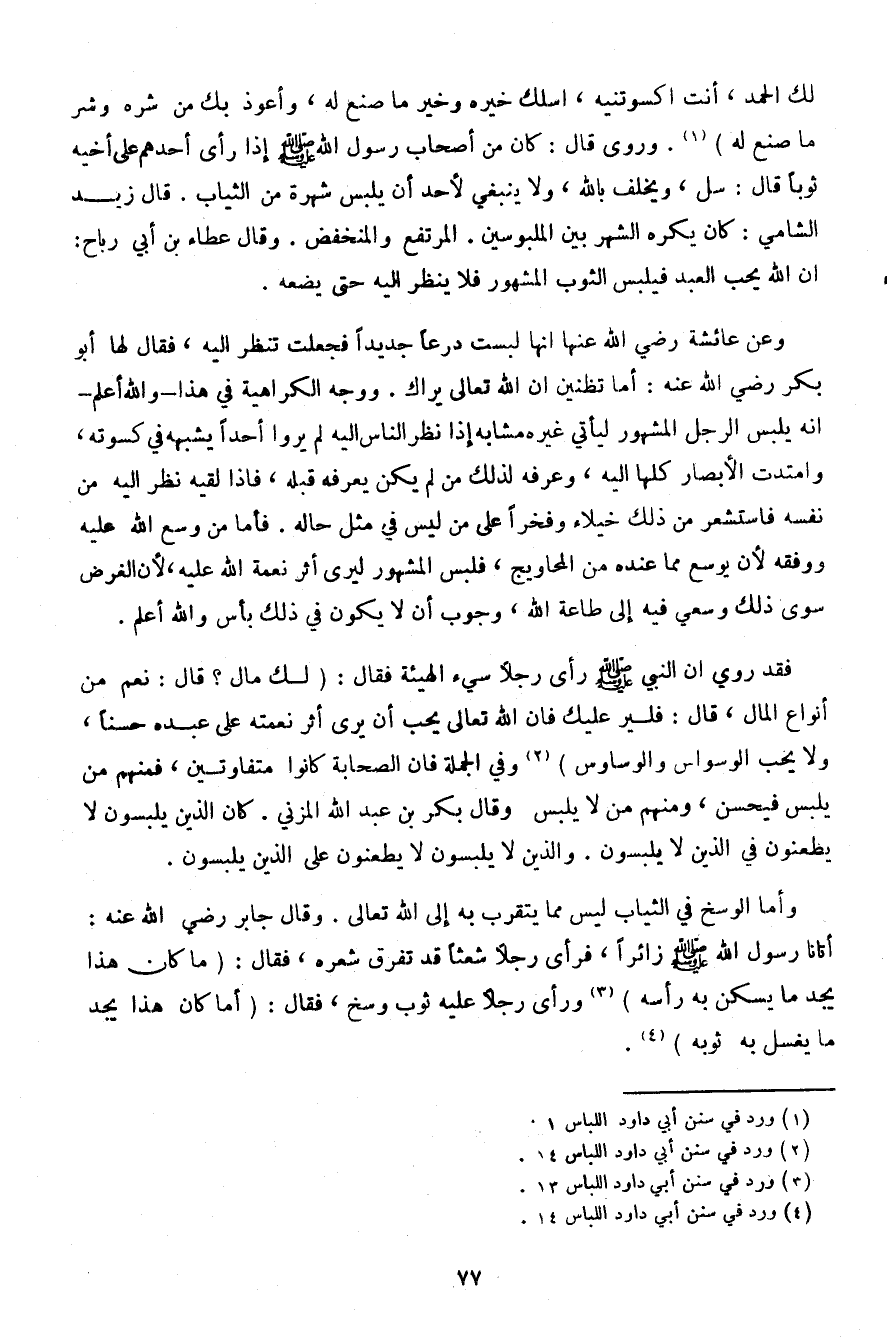 لك الحمد ، أنت اكسوتنيه ، اسلك خيره وخير ما صنع له ، وأعوذ بك من شره وشر
ما صنع له ) (١) . وروى قال : كان من أصحاب رسول الله ﷺ إذا رأى أحدهم على أخيه
ثوباً قال : سل ، ويخلف بالله ، ولا ينبغي لأحد أن يلبس شهرة من الثياب . قال زيد
الشامي : كان يكره الشهر بين الملبوسين . المرتفع والمنخفض . وقال عطاء بن أبي رباح:
ان الله يحب العبد فيلبس الثوب المشهور فلا ينظر اليه حتى يضعه .
وعن عائشة رضي الله عنها انها لبست درعاً جديداً فجعلت تنظر اليه ، فقال لها أبو
بكر رضي الله عنه : أما تظنين ان الله تعالى يراك . ووجه الكراهية في هذا – والله أعلم –
انه يلبس الرجل المشهور ليأتي غيره مشابه إذا نظر الناس اليه لم يروا أحداً يشبهه في كسوته ،
وامتدت الأبصار كلها اليه ، وعرفه لذلك من لم يكن يعرفه قبله ، فاذا لقيه نظر اليه من
نفسه فاستشعر من ذلك خيلاء وفخراً على من ليس في مثل حاله . فأما من وسع الله عليه
ووفقه لأن يوسع مما عنده من المحاويج ، فلبس المشهور ليرى أثر نعمة الله عليه ، لأن الغرض
سوى ذلك وسعي فيه إلى طاعة الله ، وجوب أن لا يكون في ذلك بأس والله أعلم .
فقد روي ان النبي ﷺ رأى رجلاً سيء الهيئة فقال : ( لك مال ؟ قال : نعم من
أنواع المال ، قال : فلير عليك فان الله تعالى يحب أن يرى أثر نعمته على عبده حسناً ،
ولا يحب الوسواس والوساوس ) (٢) وفي الجملة فان الصحابة كانوا متفاوتين ، فمنهم من
يلبس فيحسن ، ومنهم من لا يلبس وقال بكر بن عبد الله المزني . كان الذين يلبسون لا
يظعنون في الذين لا يلبسون . والذين لا يلبسون لا يطعنون على الذين يلبسون .
وأما الوسخ في الثياب ليس مما يتقرب به إلى الله تعالى . وقال جابر رضي الله عنه :
أتانا رسول الله ﷺ زائراً ، فرأى رجلاً شعثاً قد تفرق شعره ، فقال : ( ما كان هذا
يجد ما يسكن به رأسه ) (٣) ورأى رجلاً عليه ثوب وسخ ، فقال : ( أما كان هذا يجد
ما يغسل به ثوبه ) (٤) .
(١) ورد في سنن أبي داود اللباس ١ .
(٢) ورد في سنن أبي داود اللباس ١٤ .
(٣) ورد في سنن أبي داود اللباس ١٣ .
(٤) ورد في سنن أبي داود اللباس ١٤ .
٧٧